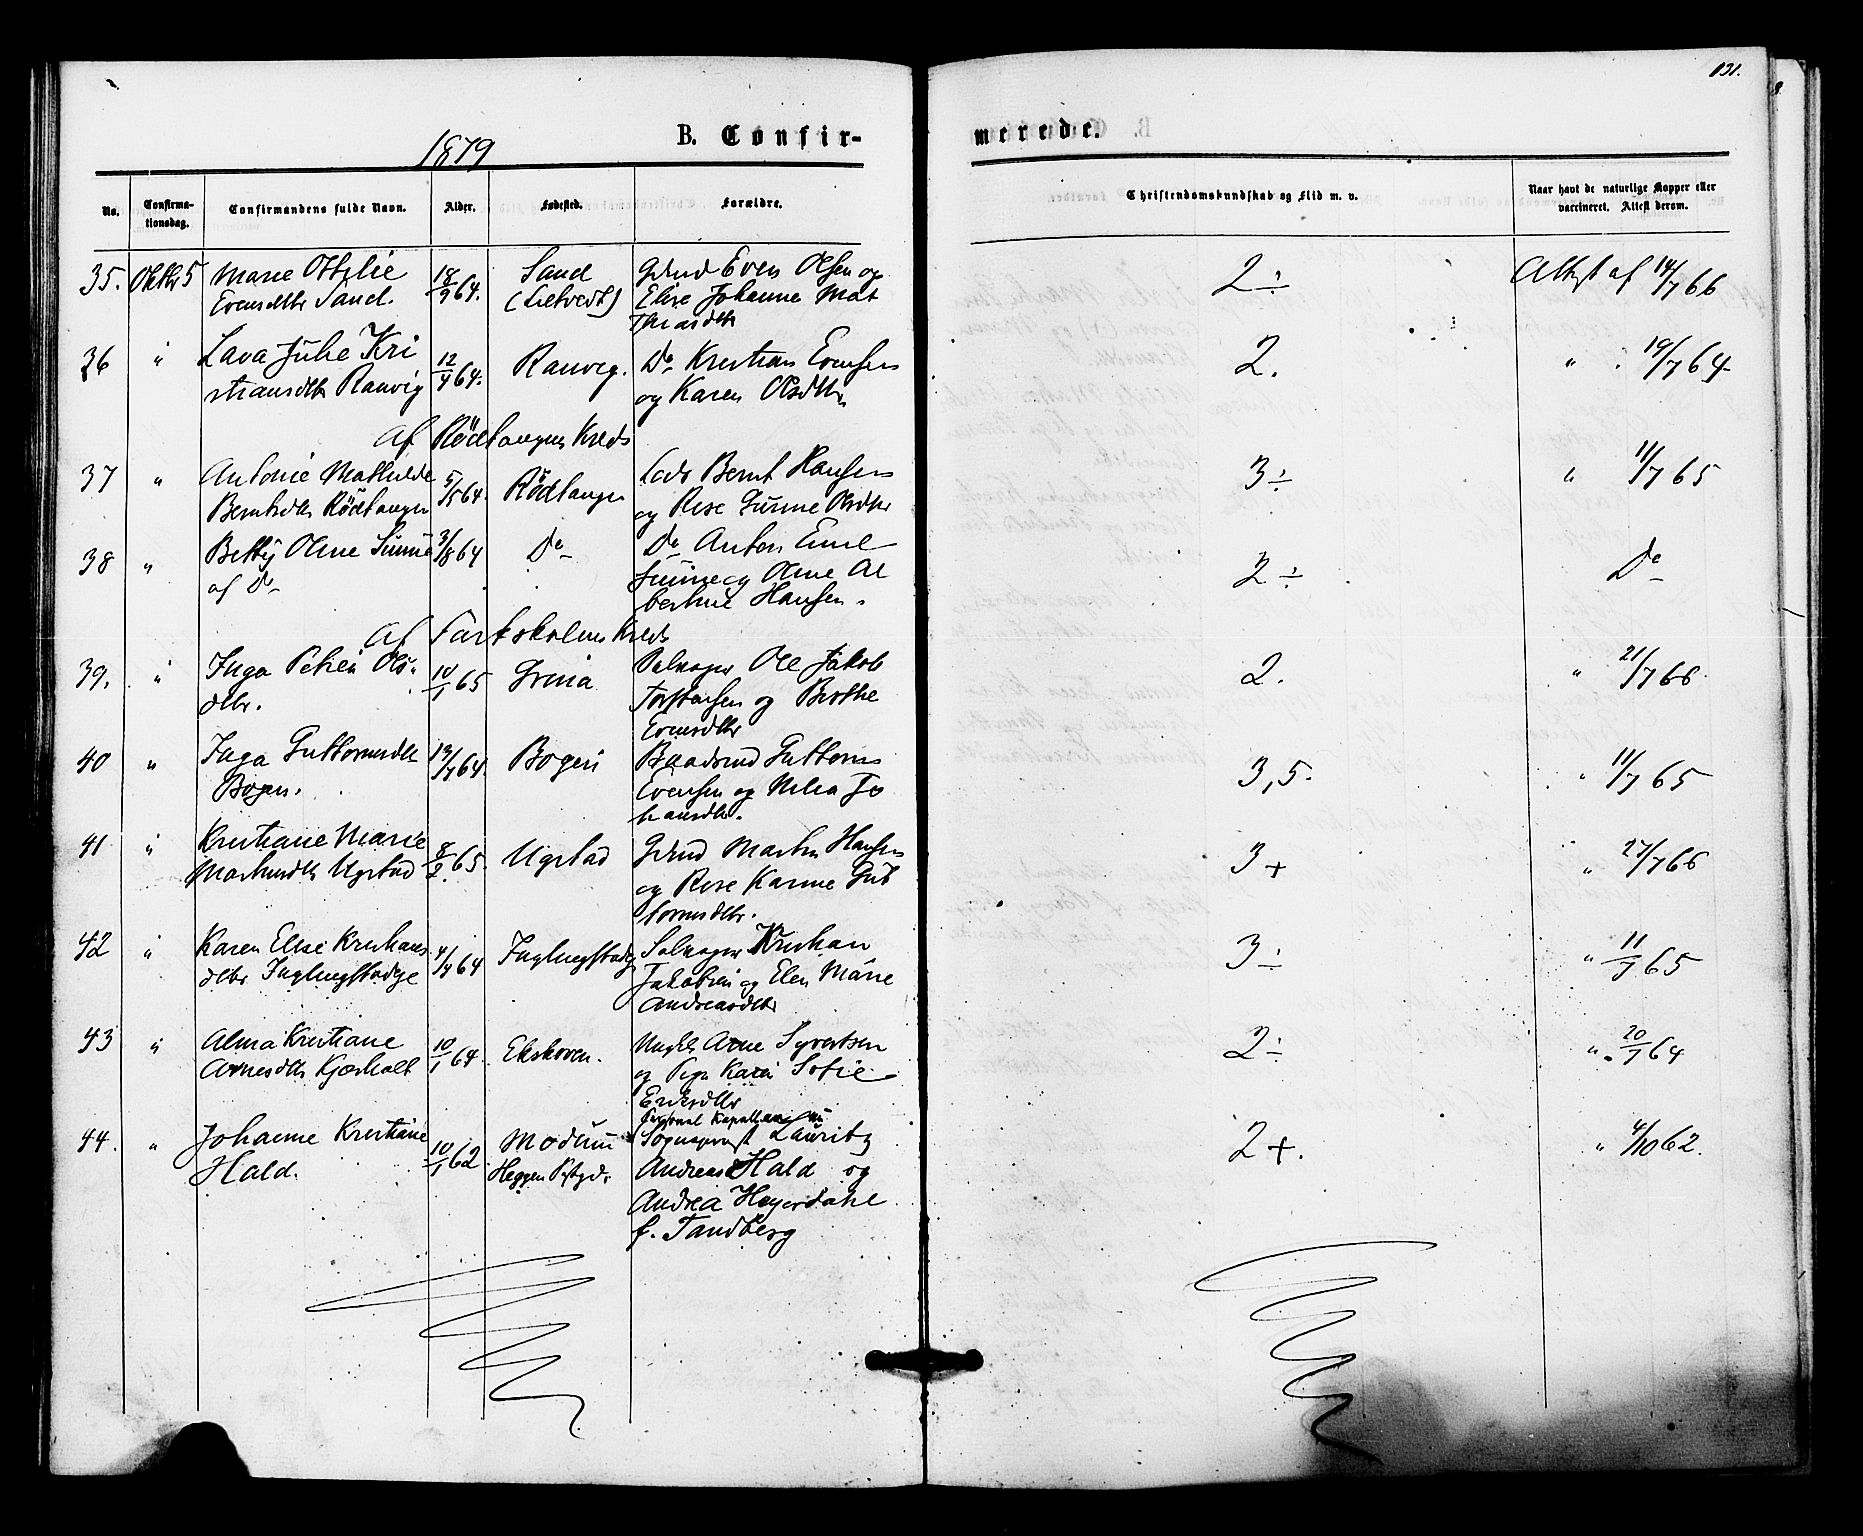 131.
1879
B. Confir-
merede.
No.
Confirma-
tionsdag.
Confirmandens fulde Navn.
Alder.
Fødested.
Forældre.
Christendomskundskab og Flid m. v.
Naar havt de naturlige Kopper eller
vaccineret. Attest derom.
35. Oktbr 5 Marie Othilie 18/9 64. Sand Grdmd Even Olsen og 2 ÷ Attest af 14/7 66
Evensdtr Sand. Elise Johanne Mat
thiasdtr
36 " Lava Julie Kri 12/4 64. Ranvig. Do Kristian Evensen 2. " 19/7 64
stiansdtr Ranvig og Karen Olsdtr
Af Rødtangens Kreds
37 " Antonie Mathilde 5/5 64. Rødtangen Lods Bernt Hansen 3 ÷ " 11/7 65
Berntsdtr Rødtangen og Rese Gurine Olsdtr
38 " Betty Oline Sunne 3/8 64 Do Do Anton Emil 2 ÷ Do
af Do Sunne og Oline Al
bertine Hansen.
Af Farkskolens Kreds
39. " Inga Petrea Ols- 10/1 65 Grina Selveger Ole Jakob 2. " 21/7 66
dtr. Torstensen og Berthe
Evensdtr
40 " Inga Guttormsdtr 13/7 64. Bogen Baadsmd Guttorm 3,5. " 11/7 65
Bogen. Evensen og Jo
hansdtr.
41 " Kristiane Marie 8/2 65. Ugstad Grdmd Martin Hansen 3 + " 27/7 66
Martinsdtr Ugstad og Rese Karine Gut
tormsdtr.
42 " Karen Elise Kristians 4/4 64 Selveger Kristian 3 ÷ " 11/7 65
dtr Jakobsen og Elen Marie
Andreasdtr
43 " Alma Kristiane 10/1 64. Ekskoven. Ungk Arne Syvertsen 2 ÷ " 20/7 64
Arnesdtr Kjærholt og Pige Karen Sofie
Eriksdtr
Personel Kapellan nu
44. " Johanne Kristiane 10/1 62. Modum Sogneprest Lauritz 2 +. " 4/10 62.
Hald. Heggen Prstgd. Andreas Hald og
Andrea Heyerdahl
f. Tandberg